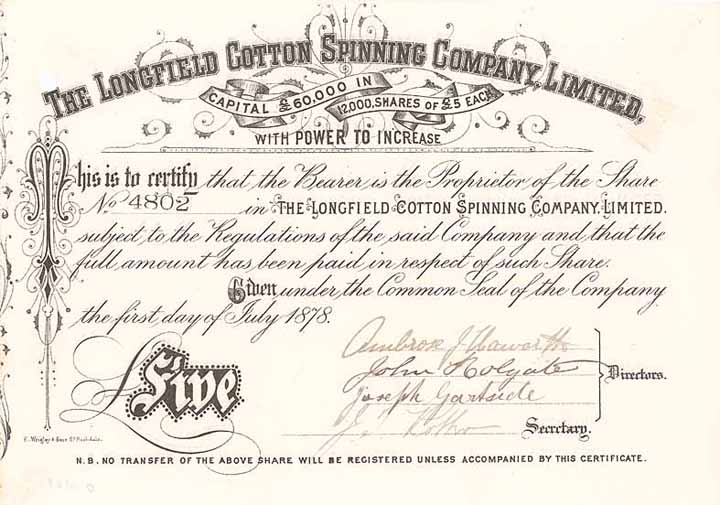 THE LONGFIELD COTTON SPINNING COMPANY, LIMITED,
CAPITAL £60,000 IN 12,000, SHARES OF £5 EACH
WITH POWER TO INCREASE
This is to certify that the Bearer is the Proprietor of the Share
No. 4802 in THE LONGFIELD COTTON SPINNING COMPANY, LIMITED.
subject to the Regulations of the said Company and that the
full amount has been paid in respect of such Share.
Given under the Common Seal of the Company
the first day of July 1878.
Ambrose J. Haworth
John Holgate
Joseph Gartside
Directors.
£Five
J.
Secretary.
E. Wrigley & Sons
N.B. NO TRANSFER OF THE ABOVE SHARE WILL BE REGISTERED UNLESS ACCOMPANIED BY THIS CERTIFICATE.